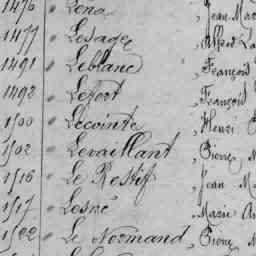 1476 " Lena , Jean Mar
1477 " Lesage , Alfred La
1491 " Leblanc , François
1492 " Lefort , François
1500 " Lecointe , Henri
1502 " Levaillant , Pierre
1516 " Le Restif , Jean Ma
1517 " Lesné , Marie An
1522 " Le Normand , Pierre